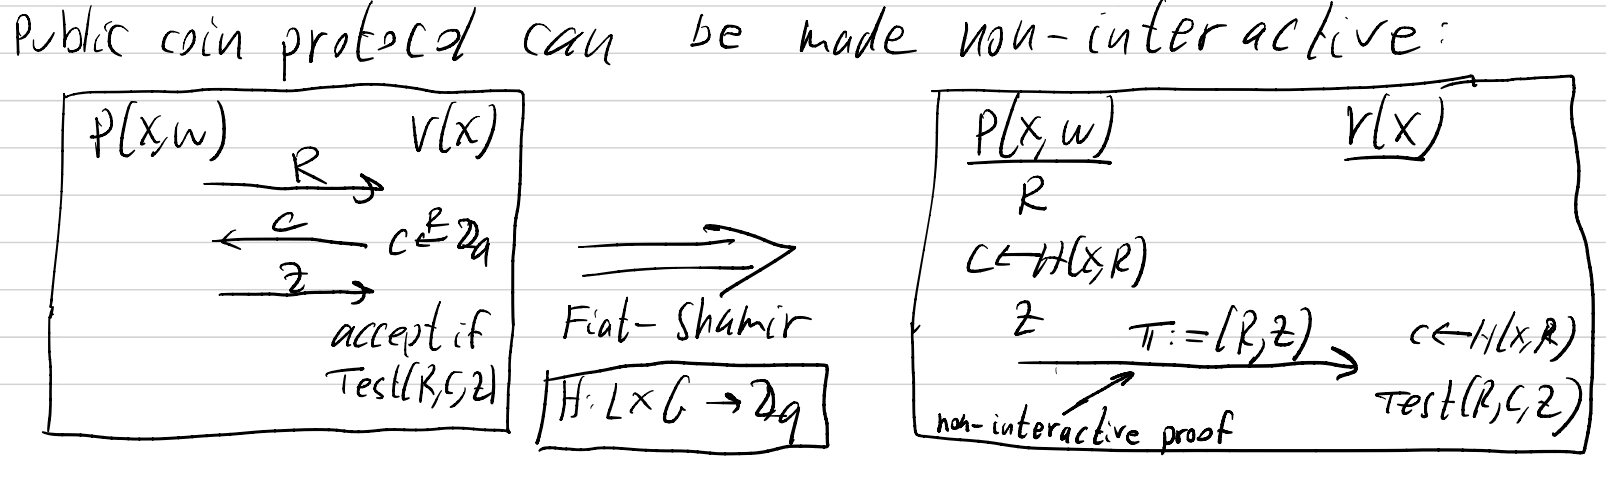 Public coin protocol can be made non-interactive:
P(x,w) V(x)
R
C C ←R ℤq
Z
accept if
Test(R,C,Z)
Fiat-Shamir
H: L × G → ℤq
P(x,w) V(x)
R
C←H(x,R)
Z π:=(R,Z) C←H(x,R)
Test(R,C,Z)
non-interactive proof